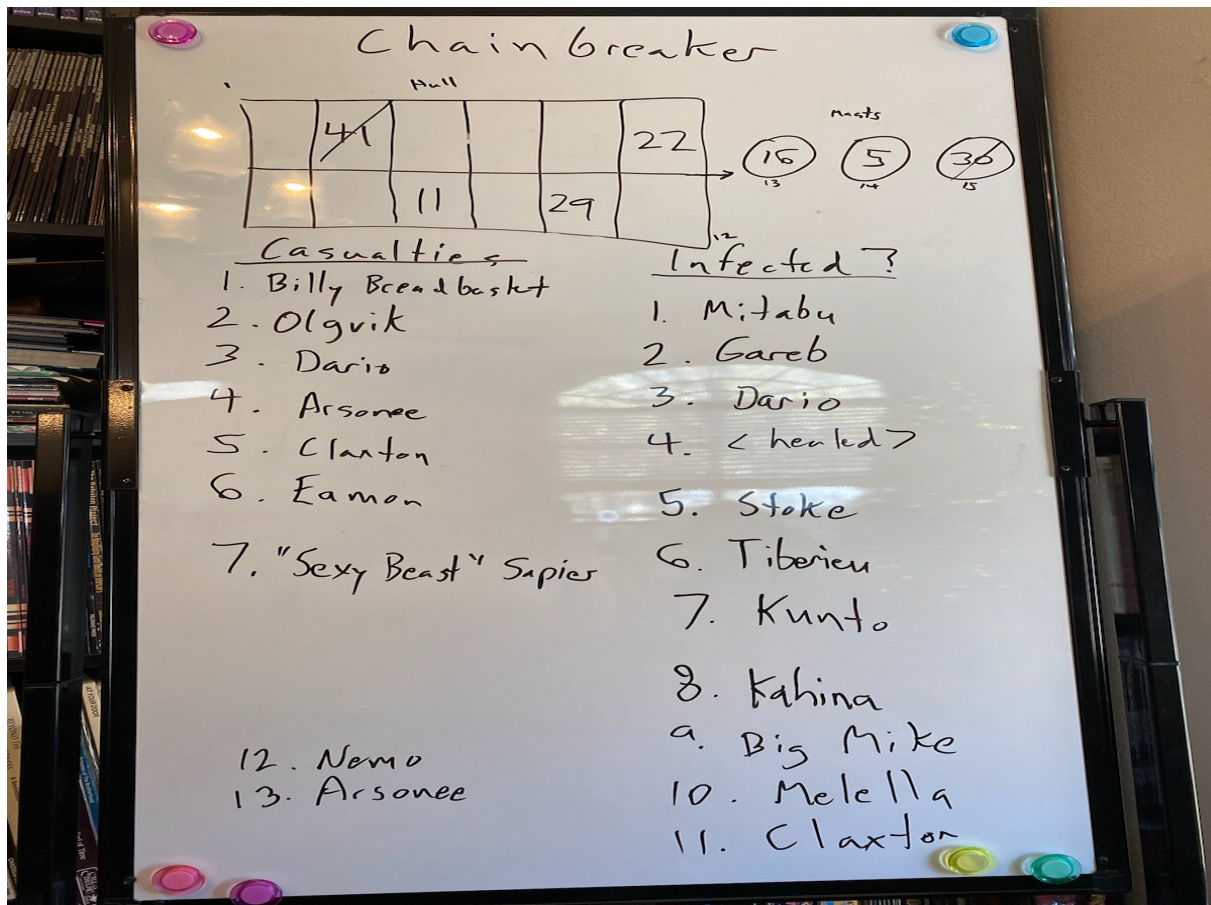 Chainbreaker
Hull
Masts
41 22
16 5 36
13 14 15
11 29
12
Casualties
1. Billy Breadbasket
2. Olgvik
3. Dario
4. Arsonee
5. Claxton
6. Eamon
7. "Sexy Beast" Sapier
12. Nemo
13. Arsonee
Infected?
1. Mitabu
2. Gareb
3. Dario
4. <healed>
5. Stoke
6. Tiberieu
7. Kunto
8. Kahina
9. Big Mike
10. Melella
11. Claxton